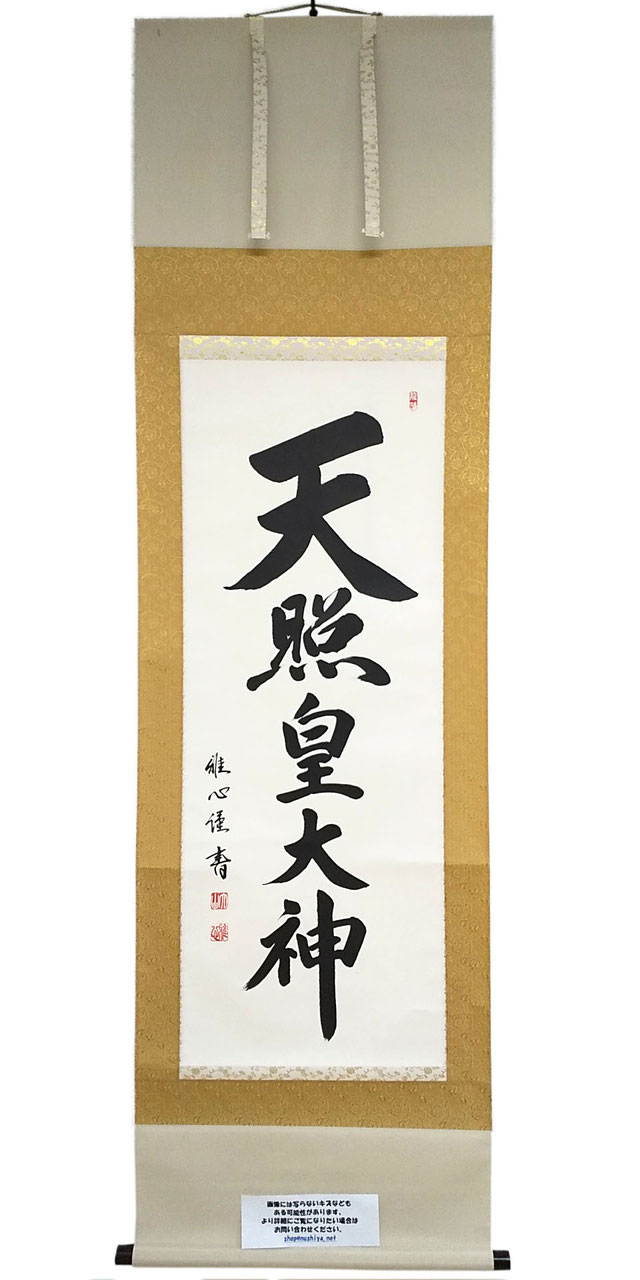 天照皇大神
雅心謹書
画像には写らないキズなども
ある可能性があります。
より詳細にご覧になりたい場合は
お問い合わせください。
shop@nushiya.net